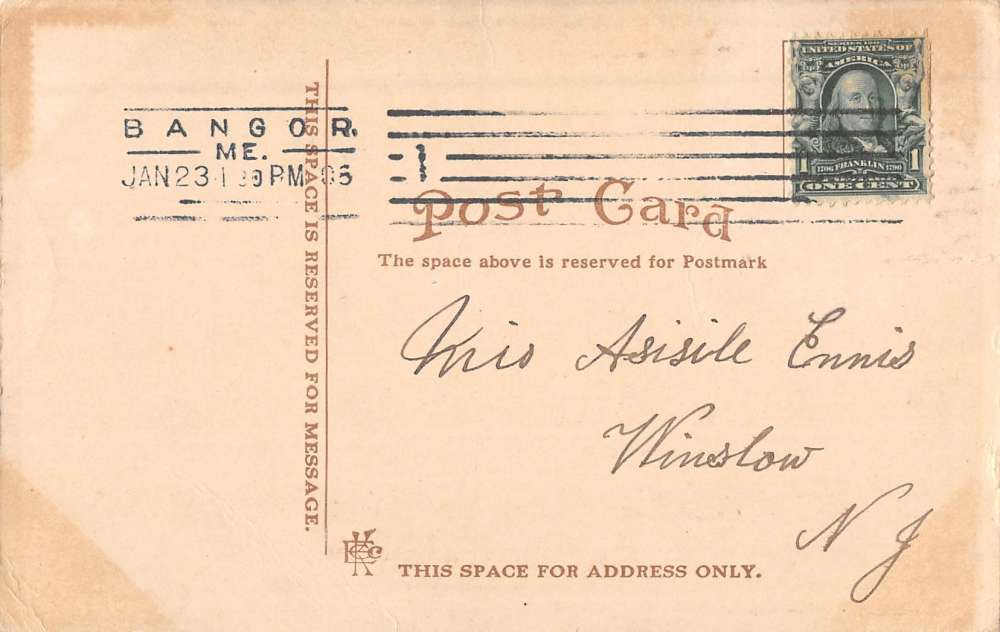 SERIES 1902
UNITED STATES OF
AMERICA
1706 FRANKLIN 1790
1 1
ONE CENT
BANGOR,
ME.
JAN 23 1 30 PM
1
Post Card
The space above is reserved for Postmark
THIS SPACE IS RESERVED FOR MESSAGE.
Miss Asisile Ennis
Winslow
N J
THIS SPACE FOR ADDRESS ONLY.